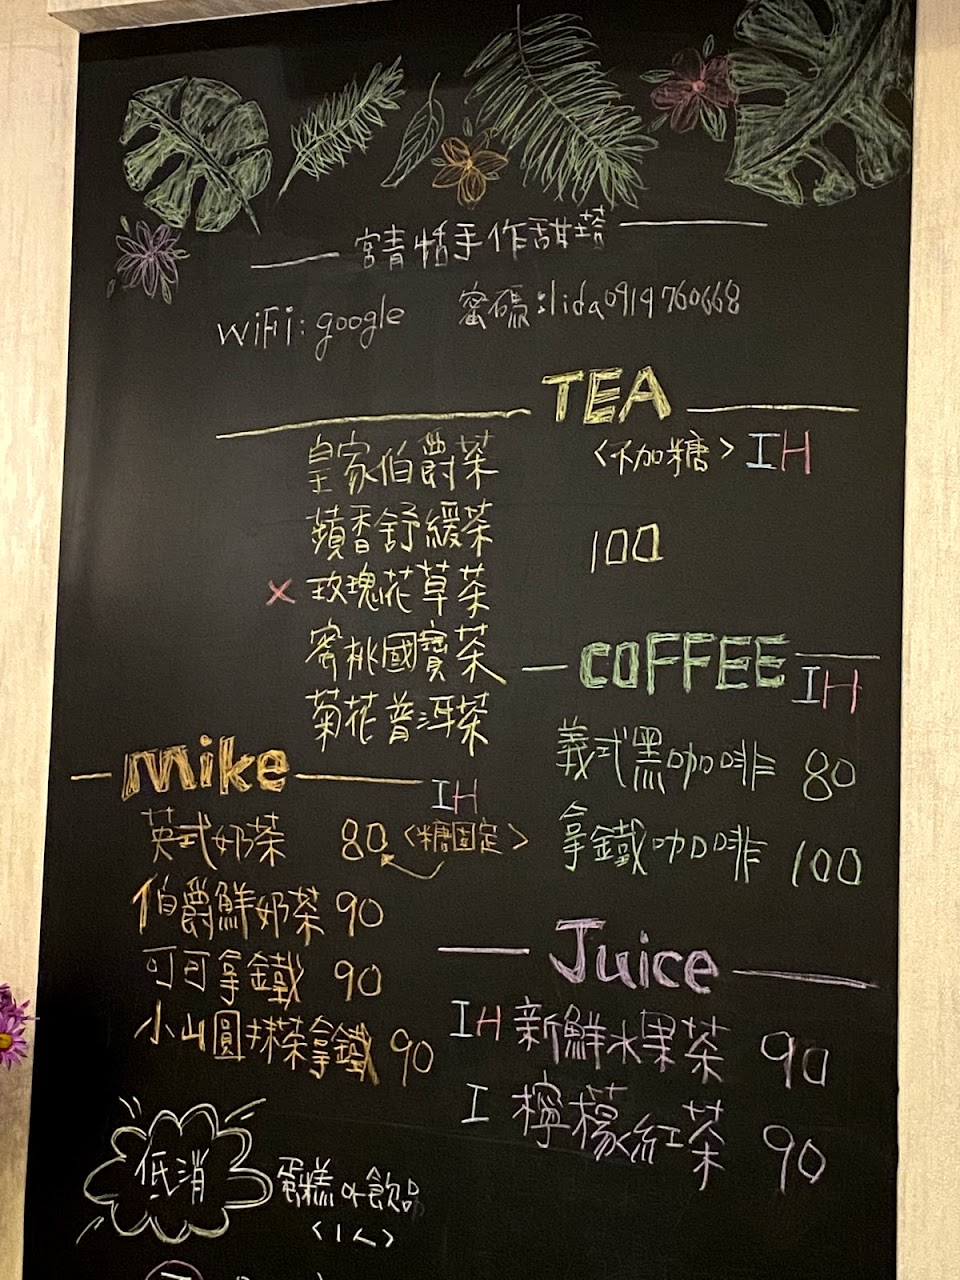 宮青恬手作甜琣
WiFi: google 密碼:lida0919760668
TEA
<不加糖> IH
皇家伯爵茶
蘋香舒緩茶
100
x 玫瑰花草茶
蜜桃國寶茶
菊花普洱茶
COFFEE
IH
義式黑咖啡 80
拿鐵咖啡 100
mike
IH
英式奶茶 80 <糖固定>
伯爵鮮奶茶 90
可可拿鐵 90
小山圓抹茶拿鐵 90
Juice
IH 新鮮水果茶 90
I 檸檬紅茶 90
低消
蛋糕or飲品
<1人>